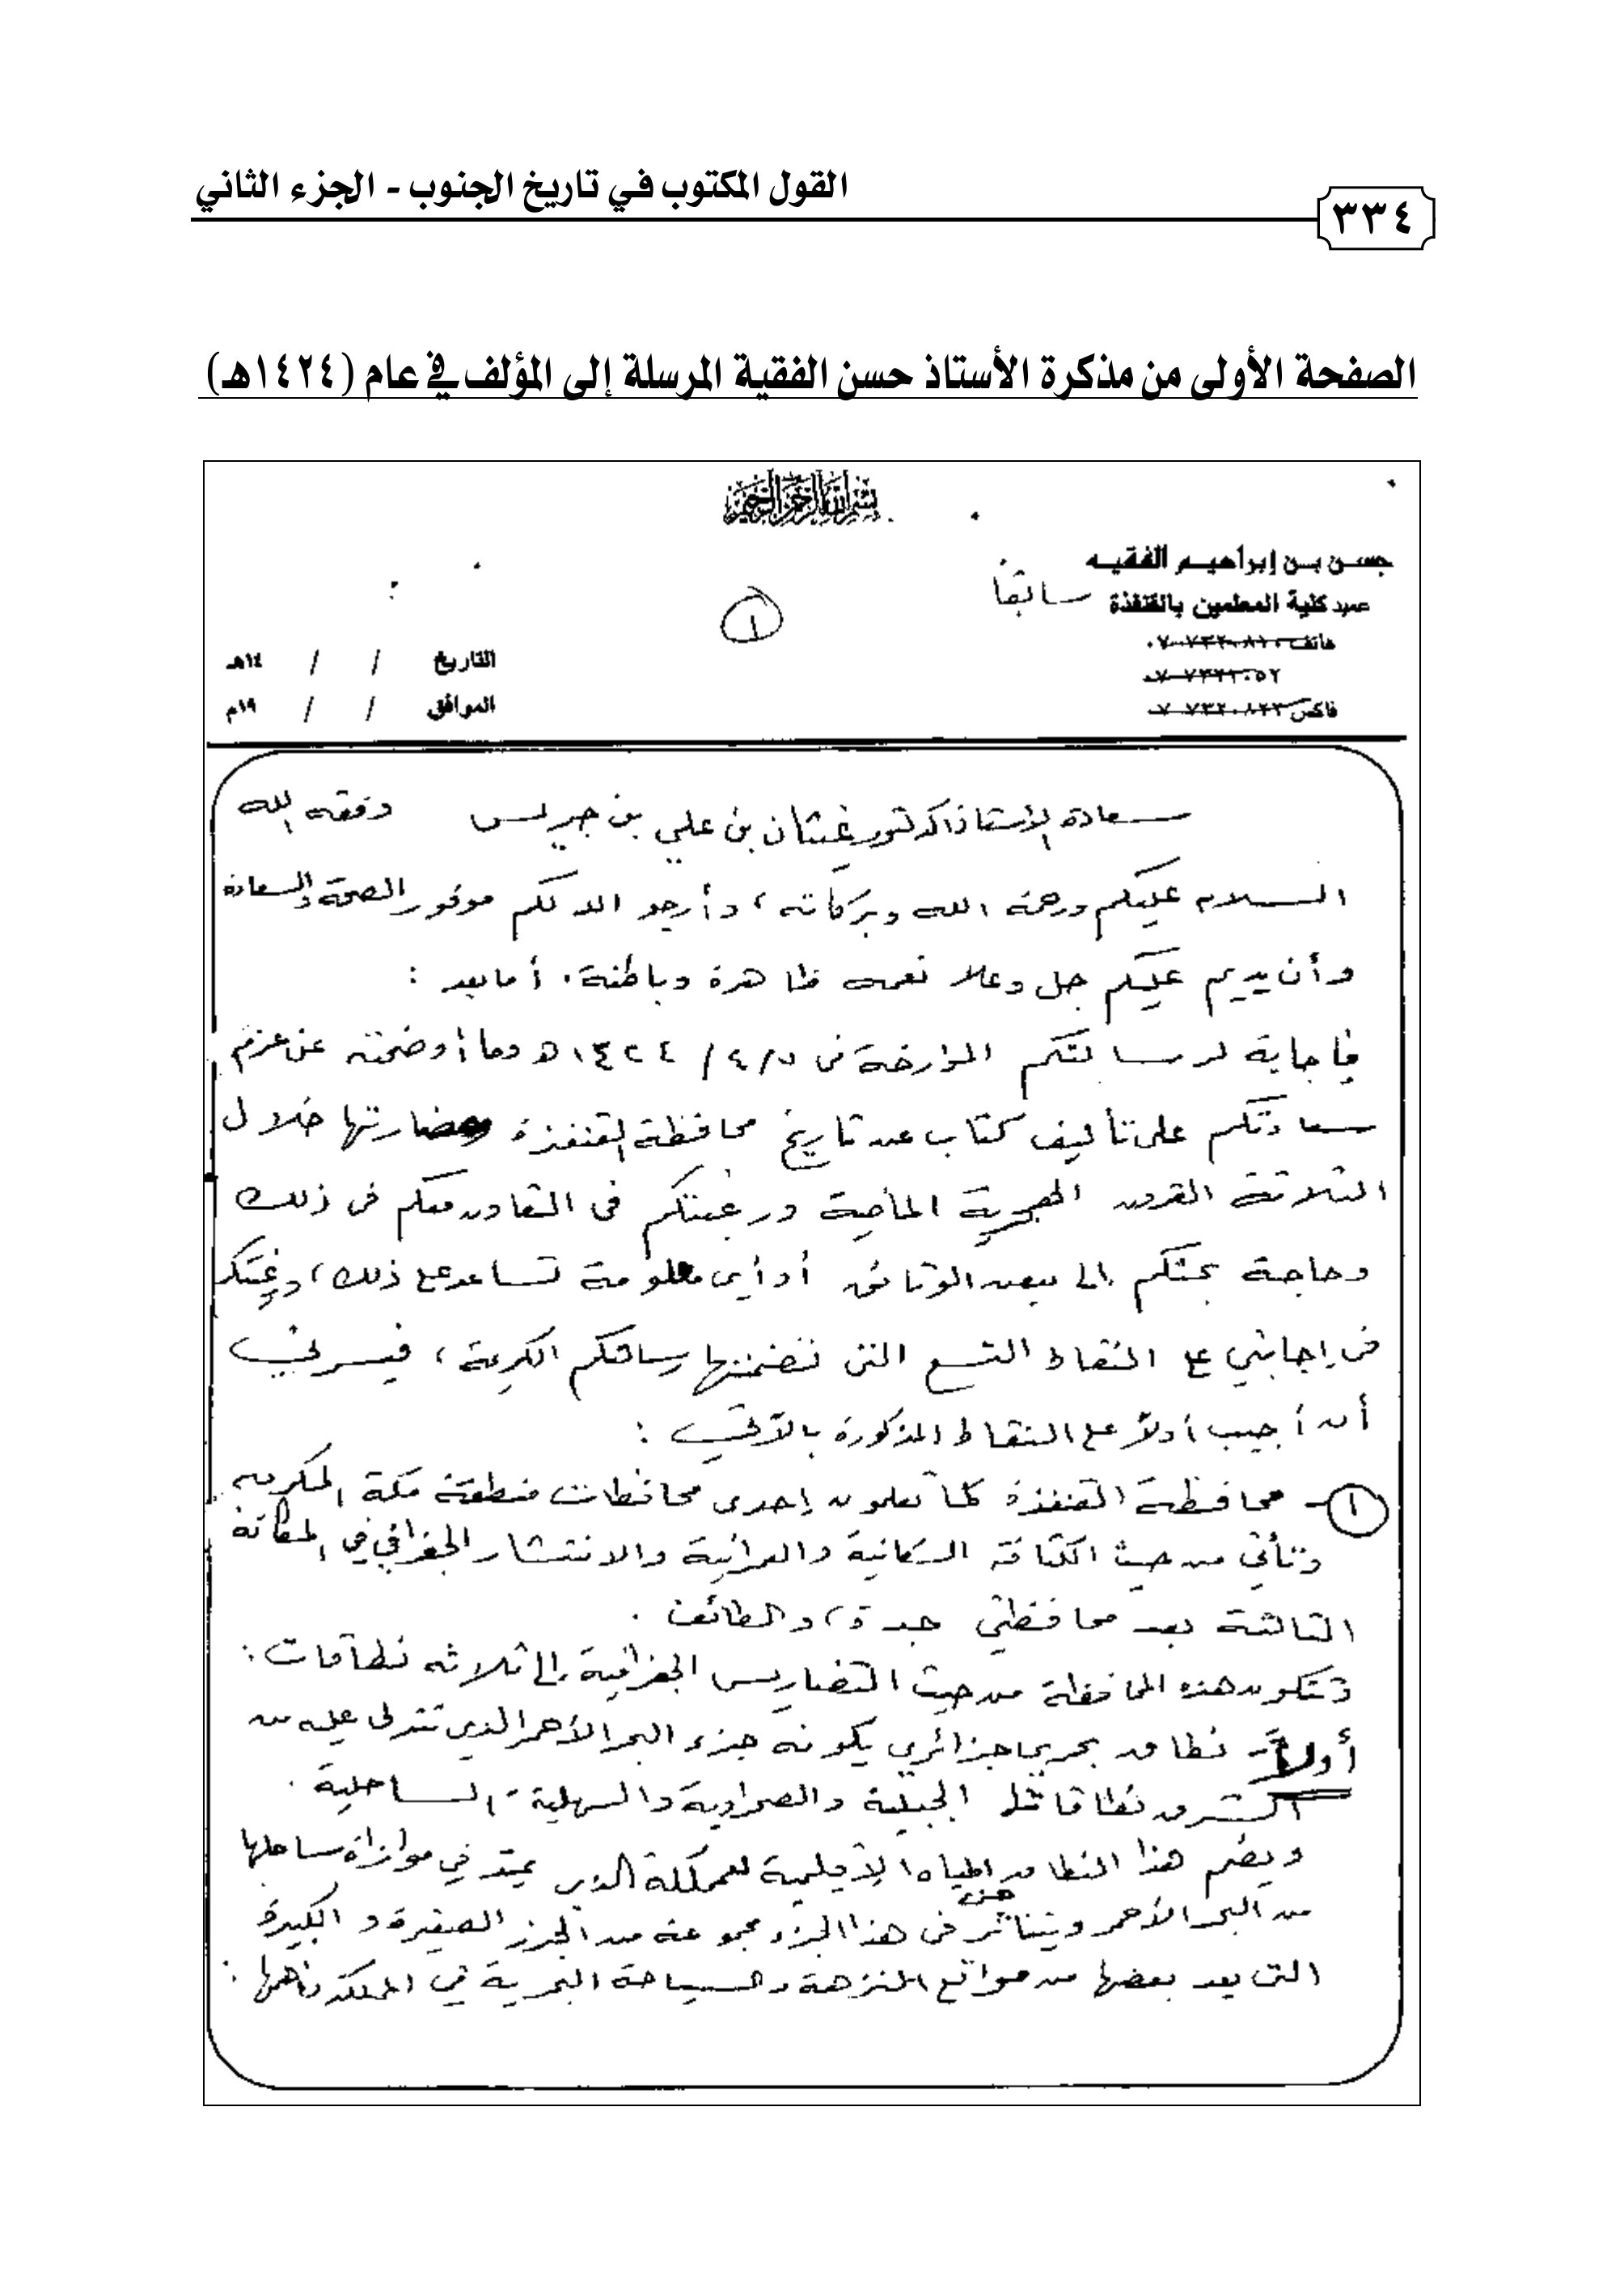 القول المكتوب في تاريخ الجنوب - الجزء الثاني
٣٣٤
الصفحة الأولى من مذكرة الأستاذ حسن الفقية المرسلة إلى المؤلف في عام (١٤٢٤هـ)
بسم الله الرحمن الرحيم
حسن بن إبراهيم الفقيه
عميد كلية المعلمين بالقنفذة سابقاً
١
هاتف ٧٣٢٠٨١٠ ٠٧
٧٣٢٢٠٥٢ ٠٧
فاكس ٧٣٢٠٨٢٢ ٠٧
التاريخ / / ١٤هـ
الموافق / / ١٩م
سعادة الأستاذ الدكتور غيثان بن علي بن جريس وفقه الله
السلام عليكم ورحمة الله وبركاته، وأرجو الله لكم موفور الصحة والسعادة
وأن يديم عليكم جل وعلا نعمه ظاهرة وباطنة. أما بعد :
فإجابة لرسالتكم المؤرخة في ٥/ ٤/ ١٤٢٤ هـ وما أوضحته عن عزم
سعادتكم على تأليف كتاب عن تاريخ محافظة القنفذة وحضارتها خلال
الثلاثة القرون الهجرية الماضية ورغبتكم في التعاون معكم في ذلك
وحاجة بحثكم إلى بعض الوثائق أو أي معلومة تساعد على ذلك، ورغبتكم
في إجابتي على النقاط التسع التي تضمنتها رسالتكم الكريمة، فيسرني
أن أجيب أولاً على النقاط المذكورة بالآتي :
١ - محافظة القنفذة كما تعلمون إحدى محافظات منطقة مكة المكرمة
وتأتي من حيث الكثافة السكانية والعمرانية والانتشار الجغرافي في المكانة
الثالثة بعد محافظتي جدة، والطائف .
وتتكون هذه المحافظة من حيث التضاريس الجغرافية إلى ثلاثة نطاقات :
أولاً - نطاق بحري جزائري يكونه جزء البحر الأحمر الذي تتدلى عليه من
الشرق نطاقاتها الجبلية والصحراوية والسهلية - الساحلية .
ويضم هذا النطاق جزء المياه الإقليمية للمملكة الذي يمتد في موازاة ساحلها
من البحر الأحمر ويتناثر في هذا الجزء مجموعة من الجزر الصغيرة والكبيرة
التي يعد بعضها من مواقع النزهة والسياحة البحرية في المملكة وأهمها :